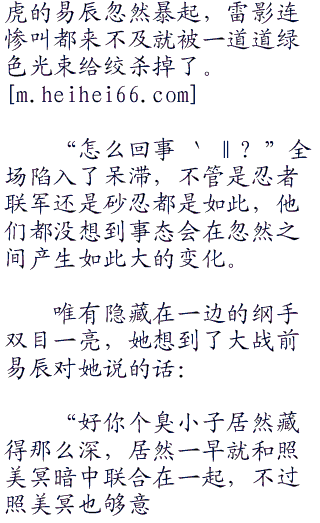 虎的易辰忽然暴起，雷影连
惨叫都来不及就被一道道绿
色光束给绞杀掉了。
[m.heihei66.com]
“怎么回事 ‵ ‖？”全
场陷入了呆滞，不管是忍者
联军还是砂忍都是如此，他
们都没想到事态会在忽然之
间产生如此大的变化。
唯有隐藏在一边的纲手
双目一亮，她想到了大战前
易辰对她说的话：
“好你个臭小子居然藏
得那么深，居然一早就和照
美冥暗中联合在一起，不过
照美冥也够意